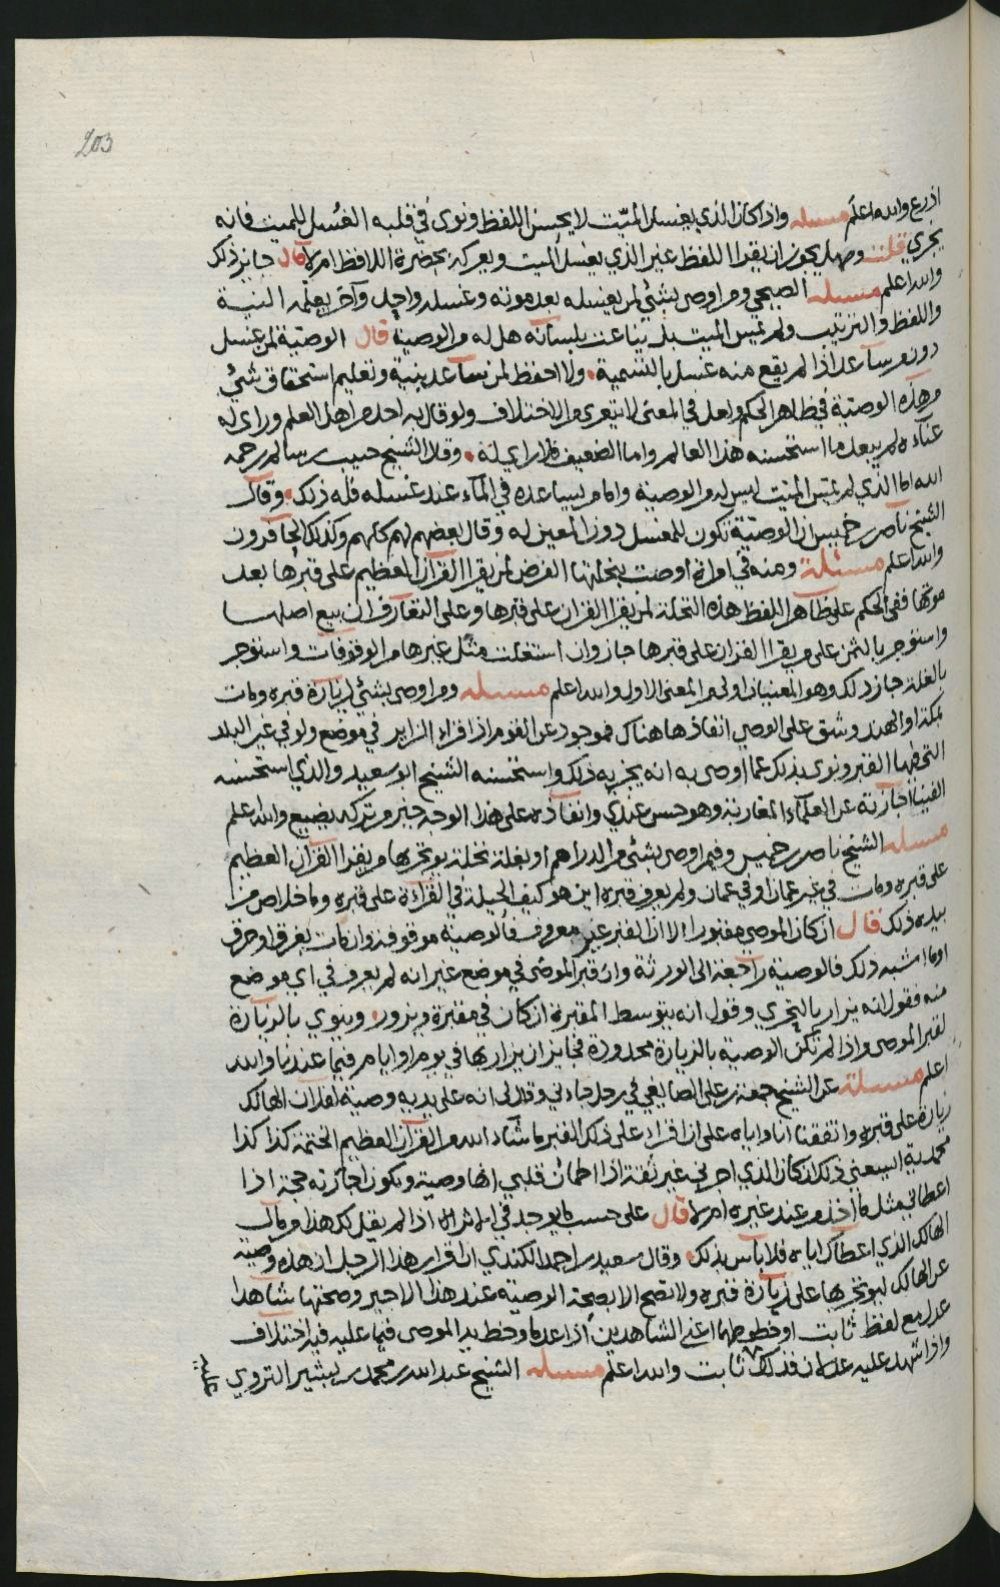 203
اذرع والله اعلم مسئله واذا كان الذي يغسل الميّت لا يحسن اللفظ ونوى في قلبه الغُسل للميت فانه
يجزي قلت وهل يجوز ان يقرا اللفظ غير الذي يغسل الميت ويعركه بحضرة اللافظ ام لا قال جائز ذلك
والله اعلم مسئله الصبحي ومن اوصى بشئ لمن يغسله بعد موته وغسله واحد وآخر يعلمه النية
واللفظ والترتيب ولم يمس الميت بل بلسانه هل له من الوصية قال الوصية لمن غسل
دون من ساعد اذا لم يقع منه غسل بالتسمية ولا احفظ لمن ساعد بنية وتعليم استحقاق شئ
من هذه الوصية في ظاهر الحكم ولعل في المعنى لا يتعرى من الاختلاف ولو قال به احد من اهل العلم وراى له
عناءه لم يبعد ما استحسنه هذا العالم واما الضعيف فلا راي له وقال الشيخ حبيب بن سالم رحمه
الله اما الذي لم يمس الميت ليس له من الوصية واما من يساعده في الماء عند غسله فله ذلك وقال
الشيخ ناصر بن خميس ان الوصية تكون للمغسل دون المعين له وقال بعضهم لهم كلهم وكذلك الحافرون
والله اعلم مسئلة ومنه في امراة اوصت بنخلتها الفرض لمن يقرا القرآن العظيم على قبرها بعد
موتها ففي الحكم على ظاهر اللفظ هذه النخلة لمن يقرا القران على قبرها وعلى التعارف ان بيع اصلها
واستؤجر بالثمن على من يقرا القران على قبرها جاز وان استغلت مثل غيرها من الوقوفات واستؤجر
بالغلة جاز ذلك وهو المعنيان اولهم المعنى الاول والله اعلم مسئله ومن اوصى بشئ لزيارة قبره ومات
بمكة او الهند وشق على الوصي انفاذها هناك فموجود عن القوم اذا قراه الزاير في موضع ولو في غير البلد
التي فيها القبر ونوى بذلك عما اوصى به انه يجزيه ذلك واستحسنه الشيخ ابو سعيد والذي استحسنه
الفينا اجازته عن العلماء المغاربة وهو حسن عندي وانفاذه على هذا الوجه خير من تركه يضيع والله اعلم
مسئله الشيخ ناصر بن خميس وفيمن اوصى بشئ من الدراهم او بغلة نخلة يؤتجر بها من يقرا القرآن العظيم
على قبره ومات في غير عمان او في عمان ولم يعرف قبره اين هو كيف الحيلة في القراءة على قبره وما خلاص من
بيده ذلك قال ان كان الموصي مقبورا الا ان القبر غير معروف فالوصية موقوفة وان مات بغرق او حرق
او ما اشبه ذلك فالوصية راجعة الى الورثة وان قبر الموصي في موضع غير انه لم يعرف في اي موضع
منه فقول انه يزار بالتحري وقول انه يتوسط المقبرة ان كان في مقبرة ويزور وينوي بالزيارة
لقبر الموصي واذا لم تكن الوصية بالزيارة محدودة فجايز ان يزار بها في يوم او ايام فيما عندنا والله
اعلم مسئلة عن الشيخ جمعة بن علي الصايغي في رجل جاءني وقال لي انه على يديه وصية لفلان الهالك
زيارة على قبره واتفقنا انا واياه على ان اقراء على ذلك القبر ما شاء الله من القرآن العظيم الختمة كذا كذا
محمدية ايسعني ذلك ان كان الذي اجرني غير ثقة اذا اطمأن قلبي انها وصية وتكون اجازته حجة اذا
اعطاني مثل ما اخذ من عند غيره ام لا قال على حسب ما يوجد في الاثر ان اذا لم يقل لك هذا من مال
الهالك الذي اعطاك اياه فلا باس بذلك وقال سعيد بن احمد الكندي ان اقرار هذا الرجل ان هذه وصية
عن الهالك ليؤتجر بها على زيارة قبره ولا تصح الا بصحة الوصية عند هذا الاجير وصحتها شاهدا
عدل مع لفظ ثابت او خطوطهما اعني الشاهدين اذا عدما وخط يد الموصي فيما عليه فيه اختلاف
واذا شهد عليه عدلان فذلك ثابت والله اعلم مسئله الشيخ عبدالله بن محمد بن بشير النزوي